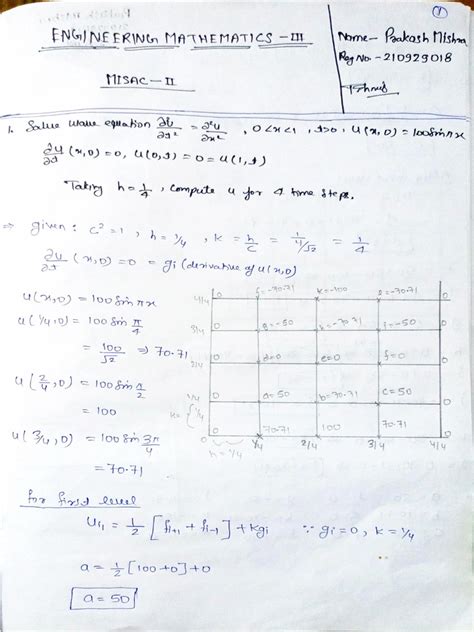 ①
ENGINEERING MATHEMATICS - III
MISAC - II
Name - Prakash Mishra
Reg No. - 210929018
1. Solve wave equation ∂²u/∂t² = ∂²u/∂x² , 0<x<1 , t>0, u(x,0) = 100 sin πx
∂u/∂t (x,0) = 0, u(0,t) = 0 = u(1,t)
Taking h = 1/4, compute u for 4 time steps.
⇒ given: c² = 1, h = 1/4, k = h/c = = 1/4
∂u/∂t (x,0) = 0 = gi (derivative of u(x,0)
u(x,0) = 100 sin πx
u(1/4,0) = 100 sin π/4
= 100/√2 ⇒ 70.71
u(2/4,0) = 100 sin π/2
= 100
u(3/4,0) = 100 sin 3π/4
= 70.71
4/4 0 = -70.71 k = -100 = -70.71 0
3/4 0 = -50 = -70.71 i = -50 0
2/4 0 d=0 e=0 f=0 0
k= 1/4 0 a=50 b=70.71 c=50 0
0 70.71 100 70.71 0
0 1/4 2/4 3/4 4/4
h = 1/4
for first level
= 1/2 [fi+1 + fi-1] + kgi ∵ gi = 0, k = 1/4
a = 1/2 [100+0] + 0
a = 50